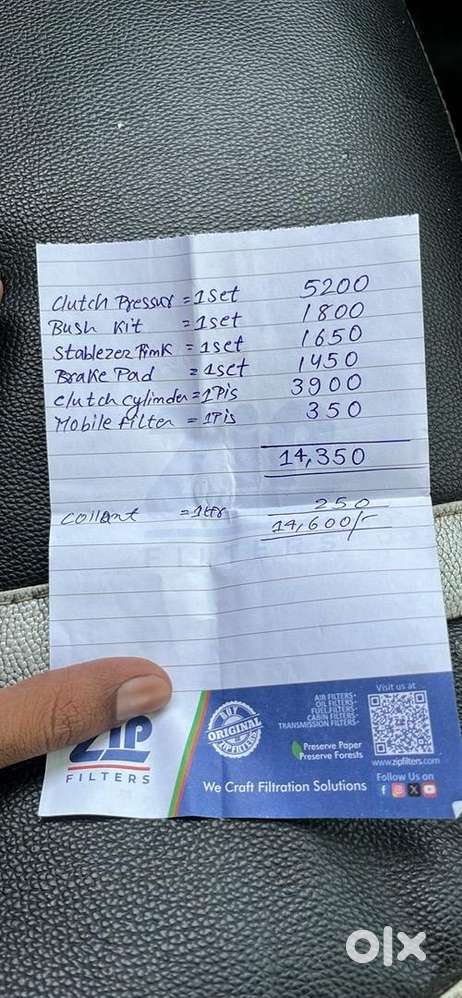 Clutch Pressur = 1 Set 5200
Bush Kit = 1 set 1800
Stablezer Rink = 1 set 1650
Brake Pad = 1 set 1450
Clutch Cylinder = 1 Pis 3900
Mobile filter = 1 Pis 350
14,350
Collant = 1 ltr 250
14,600/-
ZIP
FILTERS
BUY
ORIGINAL
ZIPFILTERS
AIR FILTERS•
OIL FILTERS•
FUEL FILTERS•
CABIN FILTERS•
TRANSMISSION FILTERS•
Preserve Paper
Preserve Forests
We Craft Filtration Solutions
Visit us at
www.zipfilters.com
Follow Us on
OLX